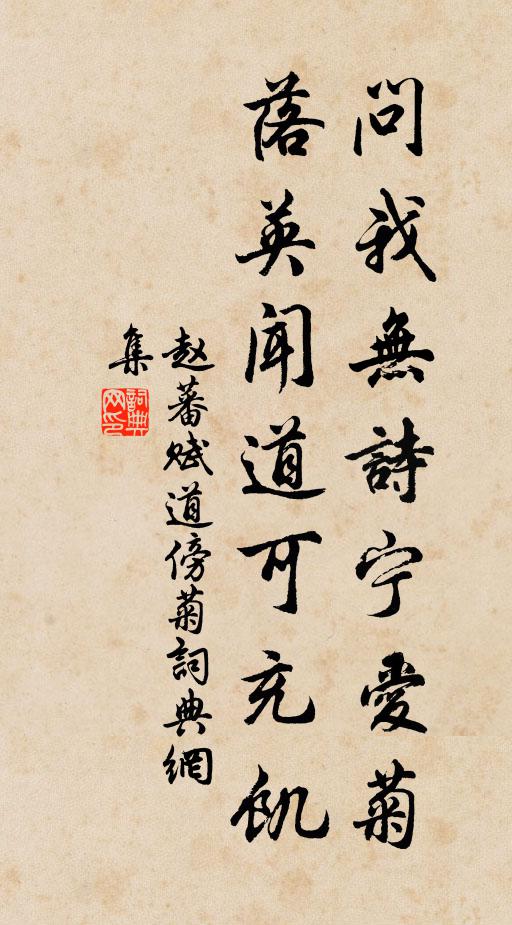 问我無詩宁愛菊
落英闻道可充飢
赵蕃赋道傍菊詞典網
集
詞典网印